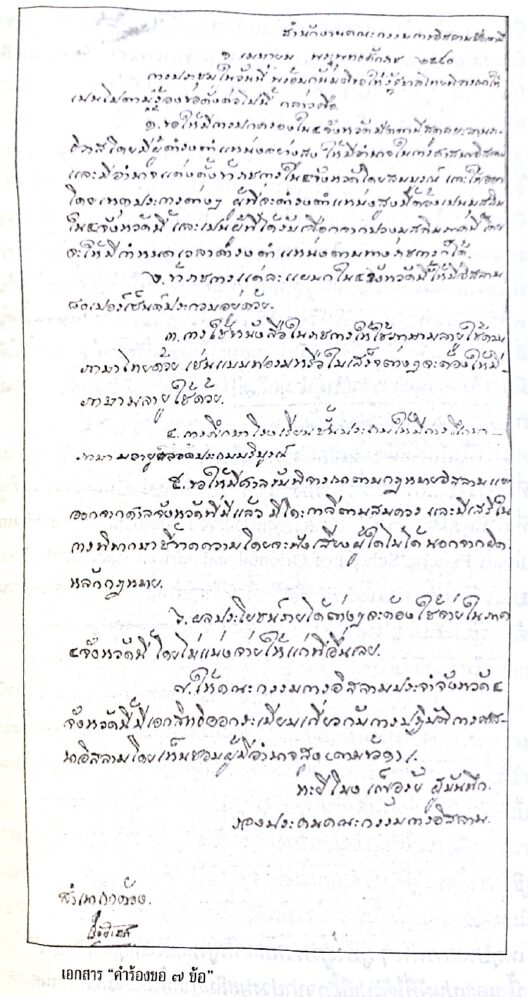 สำนักงานคณะกรรมการอิสลาม
๑ เมษายน พระพุทธศักราช ๒๔๙๐
การประชุมในวันนี้ พร้อมกันมีมติขอให้รัฐบาลไทยพิจารณาให้
เป็นไปตามคำร้องขอดังต่อไปนี้ กล่าวคือ
๑. ขอให้มีการปกครองใน ๔ จังหวัด มีปัตตานี สตูล ยะลา นรา-
ธิวาส โดยมีผู้ดำรงตำแหน่งอย่างสูง ให้มีอำนาจในการศาสนาอิสลาม
และมีอำนาจแต่งตั้งข้าราชการใน ๔ จังหวัดโดยสมบูรณ์ และให้ออก
โดยเหตุประการต่างๆ ผู้ที่จะดำรงตำแหน่งสูงนี้ต้องเป็นมุสลิม
ใน ๔ จังหวัดนี้ และเป็นผู้ที่ได้รับเลือกจากปวงมุสลิม
จะให้มีกำหนดเวลาดำรงตำแหน่งตามทางราชการก็ได้.
๒. ข้าราชการแต่ละแผนกใน ๔ จังหวัดนี้ให้มีอิสลาม
๘๐ เปอร์เซ็นต์ประกอบอยู่ด้วย.
๓. การใช้หนังสือในราชการให้ใช้ภาษามลายูใช้ตาม
ภาษาไทยด้วย เช่นแบบฟอรมหรือใบเสร็จต่างๆ จะต้องให้มี
ภาษามลายูใช้ด้วย.
๔. การศึกษาโรงเรียนชั้นประถมให้มีการศึกษา-
ภาษามลายูตลอดประถมบริบูรณ์
๕. ขอให้มีศาลรับพิจารณาตามกฎหมายอิสลามแยก
ออกจากศาลจังหวัดที่มีแล้ว มีโต๊ะกาลีตามสมควร และมีเสรีใน
การพิพากษาชี้ขาดความโดยจะฟังเสียงผู้ใดไม่ได้ นอกจากผิด
หลักกฎหมาย.
๖. ผลประโยชน์รายได้ต่างๆ จะต้องใช้จ่ายในภาค
๔ จังหวัดนี้ โดยไม่แบ่งจ่ายให้แก่ที่อื่นเลย.
๗. ให้คณะกรรมการอิสลามประจำจังหวัด ๔
จังหวัดนี้มีเอกสิทธิออกระเบียบเกี่ยวกับการปฏิบัติการศาส-
นาอิสลามโดยเห็นชอบผู้มีอำนาจสูง (ตามข้อ ๑).
ผู้บันทึก.
รองประธานคณะกรรมการอิสลาม.
สำเนาถูกต้อง.
เอกสาร “คำร้องขอ ๗ ข้อ”